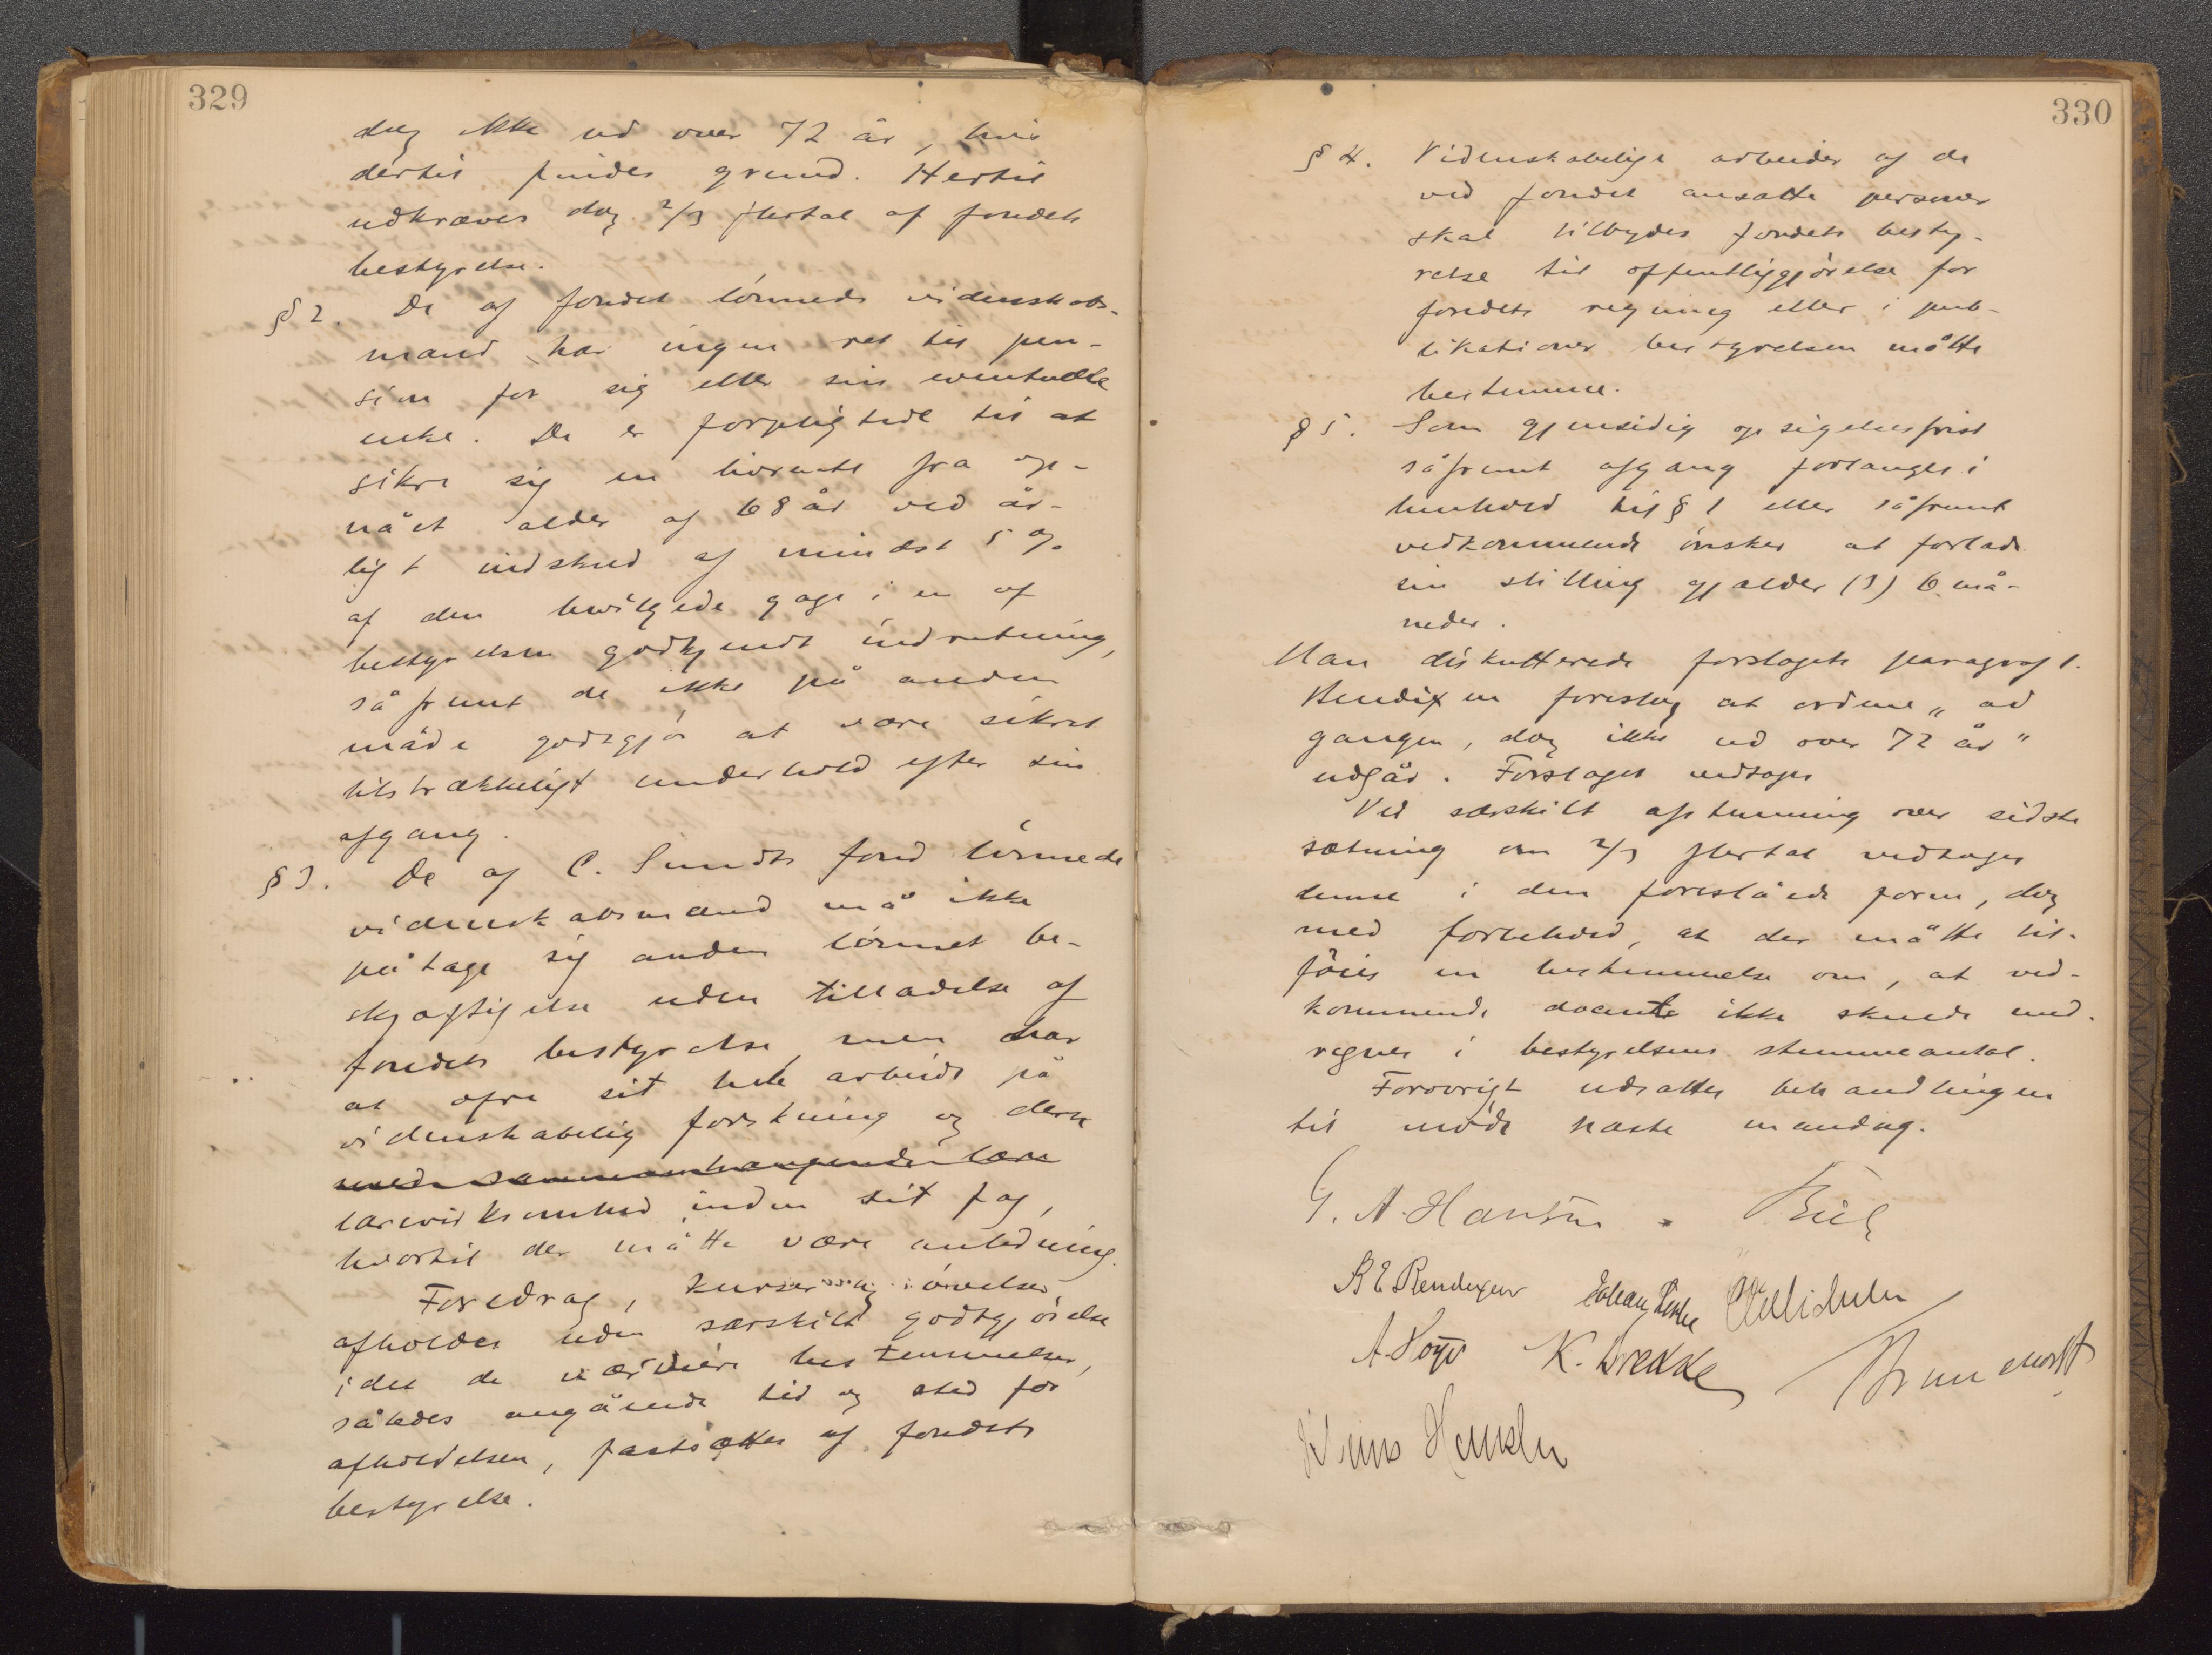 329
dog ikke ud over 72 år, hvis
dertil findes grund. Hertil
udkræves dog 2/3 flertal af fondets
bestyrelse.
§ 2. De af fondet lönnede videnskabs-
mænd har ingen ret til pen-
sion for sig eller sin eventuelle
enke. De er forpligtede til at
sikre sig en livrente fra op-
nået alder af 68 år ved år-
ligt indskud af mindst 5 %
af den bevilgede gage i en af
bestyrelsen godkjendt indretning,
såfremt de ikke på anden
måde godtgjör at være sikret
tilstrækkeligt underhold efter sin
afgang.
§ 3. De af C. Sundts fond lönnede
videnskabsmænd må ikke
påtage sig anden lönnet be-
skjæftigelse uden tilladelse af
fondets bestyrelse men har
at ofre sit hele arbeide på
videnskabelig forskning og dermed
med sammenhængende lære
lærevirksomhed inden sit fag,
hvortil der måtte være anledning.
Foredrag, kurser og övelser
afholdes uden særskilt godtgjörelse
idet de nærmere bestemmelser,
således angående tid og sted for
afholdelsen, fastsættes af fondets
bestyrelse.
330
§ 4. Videnskabelige arbeider af de
ved fondet ansatte personer
skal tilbydes fondets besty-
relse til offentliggjörelse for
fondets regning eller i pub-
likationer bestyrelsen måtte
bestemme.
§ 5. Som gjensidig opsigelsesfrist
såfremt afgang forlanges i
henhold til § 1 eller såfremt
vedkommende önsker at forlade
sin stilling gjælder (3) 6 må-
neder.
Man diskutterede forslagets paragraf 1.
Bendixen foreslog at ordene „ad
gangen, dog ikke ud over 72 år"
udgår. Forslaget vedtoges
Ved særskilt afstemning over sidste
sætning om 2/3 flertal vedtoges
denne i den foreslåede form, dog
med forbehold, at der måtte til-
föies en bestemmelse om, at ved-
kommende docente ikke skulde med-
regnes i bestyrelsens stemmeantal.
Forövrigt udsattes behandlingen
til möde næste mandag.
G. A. Hansen.
K E Bendixen
K. Brekke
Brunchorst